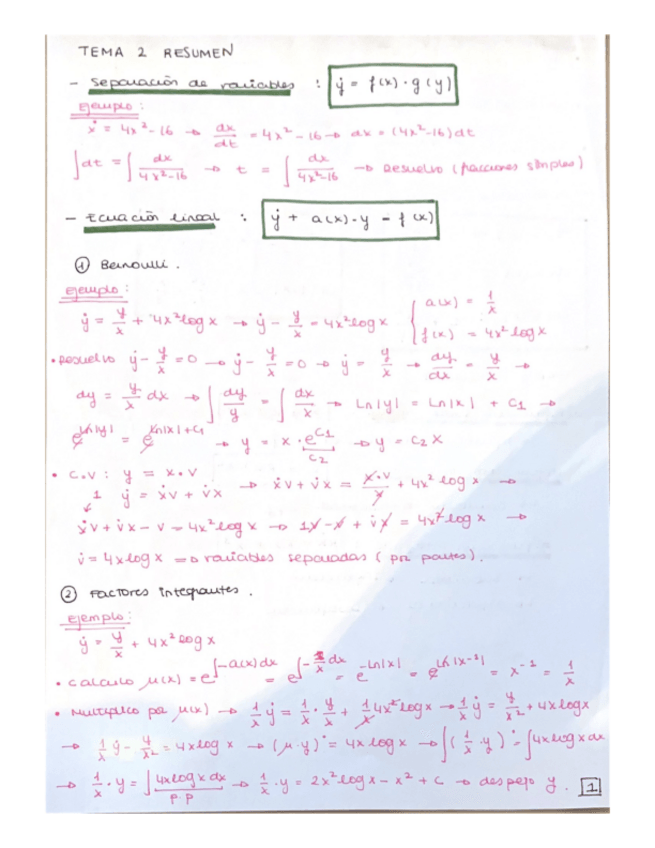 TEMA 2 RESUMEN
- Separación de variables : ẏ = f(x)·g(y)
Ejemplo:
ẋ = 4x²-16 → dx/dt = 4x²-16 → dx = (4x²-16)dt
∫dt = ∫ dx/(4x²-16) → t = ∫ dx/(4x²-16) → Resuelvo (fracciones simples)
- Ecuación lineal : ẏ + a(x)·y = f(x)
① Bernoulli.
ejemplo:
ẏ = y/x + 4x²log x → ẏ - y/x = 4x²log x { a(x) = 1/x
f(x) = 4x²log x
• Resuelvo ẏ - y/x = 0 → ẏ - y/x = 0 → ẏ = y/x → dy/dx = y/x →
dy = y/x dx → ∫ dy/y = ∫ dx/x → Ln|y| = Ln|x| + C1 →
e^(Ln|y|) = e^(Ln|x|+C1) → y = x · e^(C1) → y = C2 x
C2
• C.V : y = x·v
1 ẏ = ẋv + v̇x → ẋv + v̇x = x·v/x + 4x² log x →
ẋv + v̇x - v = 4x²log x → 1v - v + v̇x = 4x²log x →
v̇ = 4x log x ⇒ variables separadas (por partes).
② Factores integrantes.
ejemplo:
ẏ = y/x + 4x² log x
• Calculo μ(x) = e^(∫-a(x)dx) = e^(∫-1/x dx) = e^(-Ln|x|) = e^(Ln|x^-1|) = x^-1 = 1/x
• Multiplico por μ(x) → 1/x ẏ = 1/x · y/x + 1/x 4x²log x → 1/x ẏ = y/x² + 4x log x
→ 1/x ẏ - y/x² = 4x log x → (μ·y)˙ = 4x log x → ∫(1/x · y)˙ = ∫4x log x dx
→ 1/x · y = ∫4x log x dx → 1/x · y = 2x² log x - x² + C → despejo y. 1
P.P